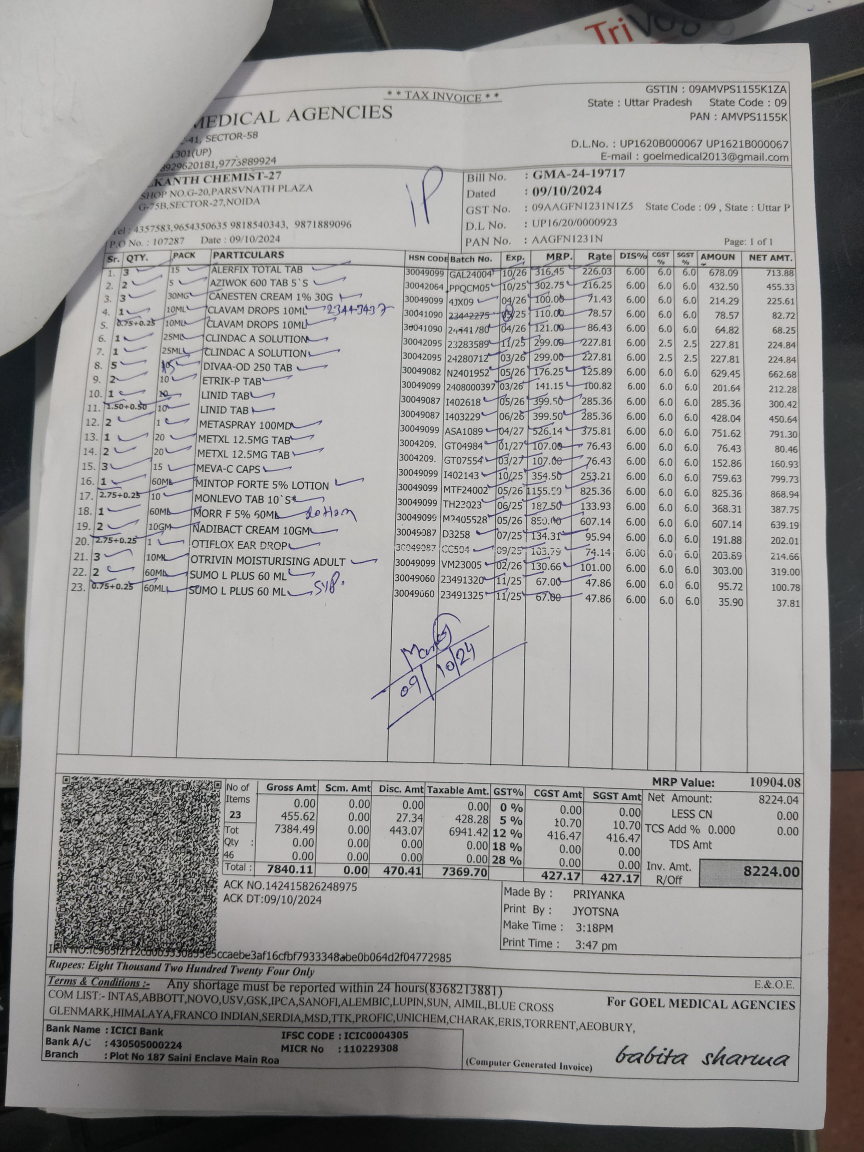 TriVo
** TAX INVOICE **
GSTIN : 09AMVPS1155K1ZA
State : Uttar Pradesh State Code : 09
PAN : AMVPS1155K
MEDICAL AGENCIES
-41, SECTOR-58
1301(UP)
9929620181,9773889924
D.L.No. : UP1620B000067 UP1621B000067
E-mail : goelmedical2013@gmail.com
KANTH CHEMIST-27
SHOP NO.G-20,PARSVNATH PLAZA
G-75B,SECTOR-27,NOIDA
Tel : 4357583,9654350635 9818540343, 9871889096
P.O No. : 107287 Date : 09/10/2024
IP
Bill No. : GMA-24-19717
Dated : 09/10/2024
GST No. : 09AAGFN1231N1Z5 State Code : 09 , State : Uttar P
D.L. No. : UP16/20/0000923
PAN No. : AAGFN1231N Page: 1 of 1
Sr. QTY. PACK PARTICULARS HSN CODE Batch No. Exp. MRP. Rate DIS% CGST % SGST % AMOUN NET AMT.
1. 3 15 ALERFIX TOTAL TAB 30049099 GAL24004 10/26 316.45 226.03 6.00 6.0 6.0 678.09 713.88
2. 2 5 AZIWOK 600 TAB 5`S 30042064 PPQCM05 10/25 302.75 216.25 6.00 6.0 6.0 432.50 455.33
3. 3 30MG CANESTEN CREAM 1% 30G 30049099 4JX09 04/26 100.00 71.43 6.00 6.0 6.0 214.29 225.61
4. 1 10ML CLAVAM DROPS 10ML 30041090 23442275 /25 110.00 78.57 6.00 6.0 6.0 78.57 82.72
5. 0.75+0.25 10ML CLAVAM DROPS 10ML 30041090 24441780 04/26 121.00 86.43 6.00 6.0 6.0 64.82 68.25
6. 1 25ML CLINDAC A SOLUTION 30042095 23283589 11/25 299.00 227.81 6.00 2.5 2.5 227.81 224.84
7. 1 25ML CLINDAC A SOLUTION 30042095 24280712 03/26 299.00 227.81 6.00 2.5 2.5 227.81 224.84
8. 5 10 DIVAA-OD 250 TAB 30049082 N2401952 05/26 176.25 125.89 6.00 6.0 6.0 629.45 662.68
9. 2 10 ETRIK-P TAB 30049099 2408000397 03/26 141.15 100.82 6.00 6.0 6.0 201.64 212.28
10. 1 10 LINID TAB 30049087 I402618 05/26 399.50 285.36 6.00 6.0 6.0 285.36 300.42
11. 1.50+0.50 10 LINID TAB 30049087 I403229 06/26 399.50 285.36 6.00 6.0 6.0 428.04 450.64
12. 2 1 METASPRAY 100MD 30049099 ASA1089 04/27 526.14 375.81 6.00 6.0 6.0 751.62 791.30
13. 1 20 METXL 12.5MG TAB 3004209. GT04984 01/27 107.00 76.43 6.00 6.0 6.0 76.43 80.46
14. 2 20 METXL 12.5MG TAB 3004209. GT07554 03/27 107.00 76.43 6.00 6.0 6.0 152.86 160.93
15. 3 15 MEVA-C CAPS 30049099 I402143 10/25 354.50 253.21 6.00 6.0 6.0 759.63 799.73
16. 1 60ML MINTOP FORTE 5% LOTION 30049099 MTF24002 05/26 1155.59 825.36 6.00 6.0 6.0 825.36 868.94
17. 2.75+0.25 10 MONLEVO TAB 10`S 30049099 TH23023 06/26 187.50 133.93 6.00 6.0 6.0 368.31 387.75
18. 1 60ML MORR F 5% 60ML lotion 30049099 M2405528 05/26 850.00 607.14 6.00 6.0 6.0 607.14 639.19
19. 2 10GM NADIBACT CREAM 10GM 30049099 D3258 07/25 134.31 95.94 6.00 6.0 6.0 191.88 202.01
20. 2.75+0.25 1 OTIFLOX EAR DROP 30049087 CC504 09/25 103.79 74.14 6.00 6.0 6.0 203.89 214.66
21. 3 10ML OTRIVIN MOISTURISING ADULT 30049099 VM23005 02/26 130.66 101.00 6.00 6.0 6.0 303.00 319.00
22. 2 60ML SUMO L PLUS 60 ML 30049060 23491320 11/25 67.00 47.86 6.00 6.0 6.0 95.72 100.78
23. 0.75+0.25 60ML SUMO L PLUS 60 ML syp. 30049060 23491325 11/25 67.00 47.86 6.00 6.0 6.0 35.90 37.81
09/10/24
MRP Value: 10904.08
No of Items 23 Tot Qty : 46
Gross Amt Scm. Amt Disc. Amt Taxable Amt. GST% CGST Amt SGST Amt
0.00 0.00 0.00 0.00 0 % 0.00 0.00
455.62 0.00 27.34 428.28 5 % 10.70 10.70
7384.49 0.00 443.07 6941.42 12 % 416.47 416.47
0.00 0.00 0.00 0.00 18 % 0.00 0.00
0.00 0.00 0.00 0.00 28 % 0.00 0.00
Total : 7840.11 0.00 470.41 7369.70 427.17 427.17
Net Amount: 8224.04
LESS CN 0.00
TCS Add % 0.000 0.00
TDS Amt
Inv. Amt. R/Off 8224.00
ACK NO.142415826248975
ACK DT:09/10/2024
Made By : PRIYANKA
Print By : JYOTSNA
Make Time : 3:18PM
Print Time : 3:47 pm
Rupees: Eight Thousand Two Hundred Twenty Four Only
Terms & Conditions :- Any shortage must be reported within 24 hours(8368213881) E.&.O.E.
COM LIST:- INTAS,ABBOTT,NOVO,USV,GSK,IPCA,SANOFI,ALEMBIC,LUPIN,SUN, AIMIL,BLUE CROSS
GLENMARK,HIMALAYA,FRANCO INDIAN,SERDIA,MSD,TTK,PROFIC,UNICHEM,CHARAK,ERIS,TORRENT,AEOBURY,
For GOEL MEDICAL AGENCIES
Bank Name : ICICI Bank IFSC CODE : ICIC0004305
Bank A/C : 430505000224 MICR No : 110229308
Branch : Plot No 187 Saini Enclave Main Roa
(Computer Generated Invoice)
babita sharma